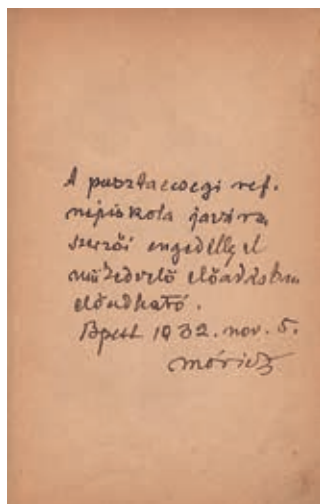 A pusztaecsegi ref.
népiskola javára
szerzői engedéllyel
műkedvelő előadásban
előadható.
Bpest 1932. nov. 5.
Móricz